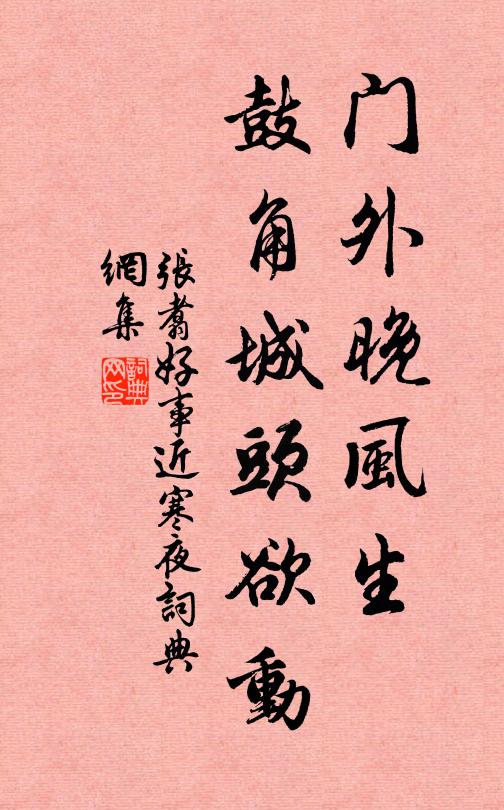 门外晚風生
鼓角城頭欲動
張翥好事近寒夜詞典
網集
詞典
网印